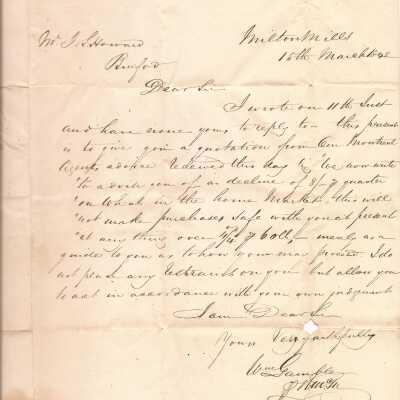 Milton Mills
15th March 1842
Mr J S Howard
Dear Sir
I wrote on 11th Inst
and have none yours to reply to - this present
is to give you a quotation from our Montreal
Agents advice received this day "We now write
"to advise you of an decline of 2/- quarter
"on Wheat in the home Market this will
"not make purchases safe with you at present
"at any thing over 60 lbs - merely as a
guide to you as to how you may proceed I do
not place any restraint on you but allow you
to act in accordance with your own judgement
I am Dear Sir
Yours Very faithfully
Wm Gamble